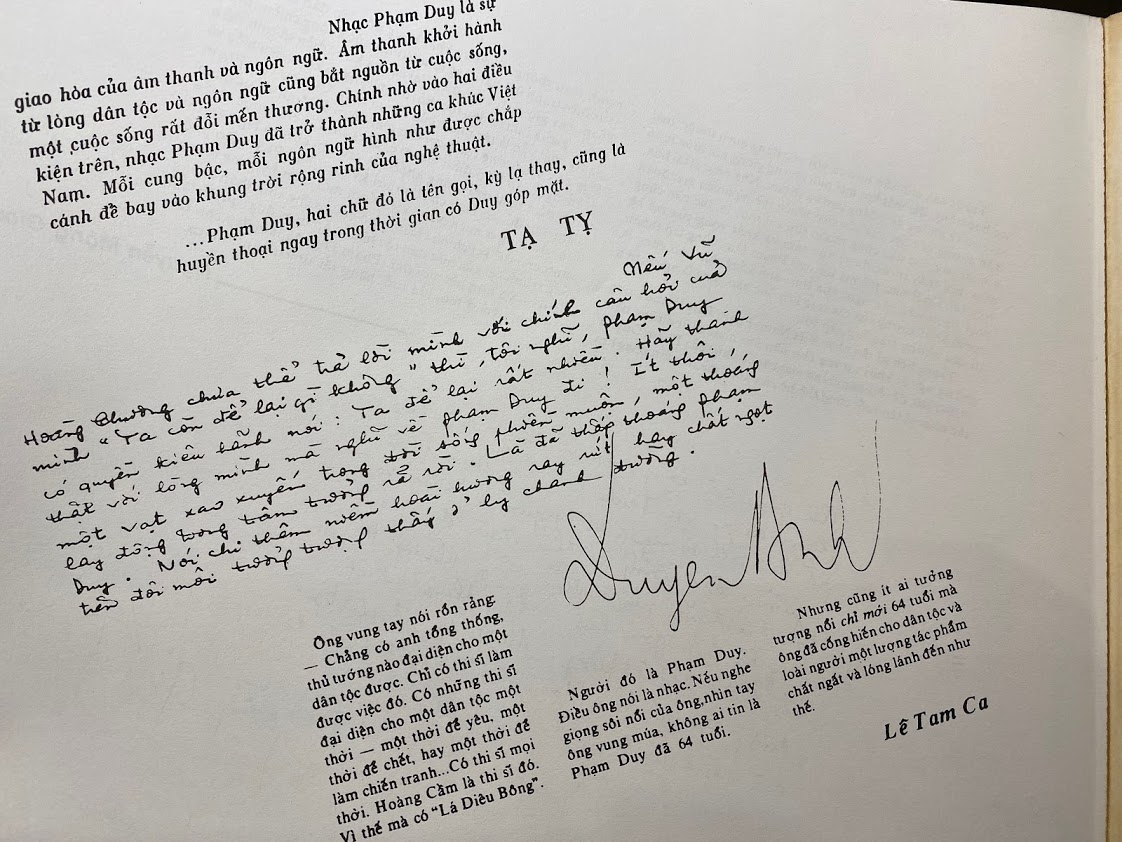 Nhạc Phạm Duy là sự
giao hòa của âm thanh và ngôn ngữ. Âm thanh khởi hành
từ lòng dân tộc và ngôn ngữ cũng bắt nguồn từ cuộc sống,
một cuộc sống rất đỗi mến thương. Chính nhờ vào hai điều
kiện trên, nhạc Phạm Duy đã trở thành những ca khúc Việt
Nam. Mỗi cung bậc, mỗi ngôn ngữ hình như được chắp
cánh để bay vào khung trời rộng rinh của nghệ thuật.
...Phạm Duy, hai chữ đó là tên gọi, kỳ lạ thay, cũng là
huyền thoại ngay trong thời gian có Duy góp mặt.
TẠ TỴ
Nếu Vũ
Hoàng Chương chưa thể trả lời mình với chính câu hỏi của
mình "Ta còn để lại gì không" thì, tôi nghĩ, Phạm Duy
có quyền kiêu hãnh nói: Ta để lại rất nhiều. Hãy thành
thật với lòng mình mà nghĩ về Phạm Duy đi! Ít thôi,
một vạt xao xuyến trong đời sống phiền muộn, một thoáng
lay động trong tâm tưởng rã rời. Là đã thấp thoáng Phạm
Duy. Nói chi thêm niềm hoài hương ray rứt hay chất ngọt
trên đôi môi tưởng tượng thấy ở ly chanh đường.
Duyên Anh
Ông vung tay nói rổn rảng.
— Chẳng có anh tổng thống,
thủ tướng nào đại diện cho một
dân tộc được. Chỉ có thi sĩ làm
được việc đó. Có những thi sĩ
đại diện cho một dân tộc một
thời — một thời để yêu, một
thời để chết, hay một thời để
làm chiến tranh...Có thi sĩ mọi
thời. Hoàng Cầm là thi sĩ đó.
Vì thế mà có "Lá Diêu Bông".
Người đó là Phạm Duy.
Điều ông nói là nhạc. Nếu nghe
giọng sôi nổi của ông, nhìn tay
ông vung múa, không ai tin là
Phạm Duy đã 64 tuổi.
Nhưng cũng ít ai tưởng
tượng nổi chỉ mới 64 tuổi mà
ông đã cống hiến cho dân tộc và
loài người một lượng tác phẩm
chất ngất và lóng lánh đến như
thế.
Lê Tam Ca